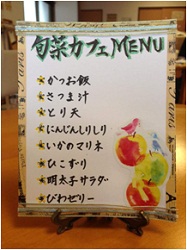 旬菜カフェMENU
★かつお飯
★さつま汁
★とり天
★にんじんしりしり
★いかのマリネ
★ひこずり
★明太子サラダー
★びわゼリー